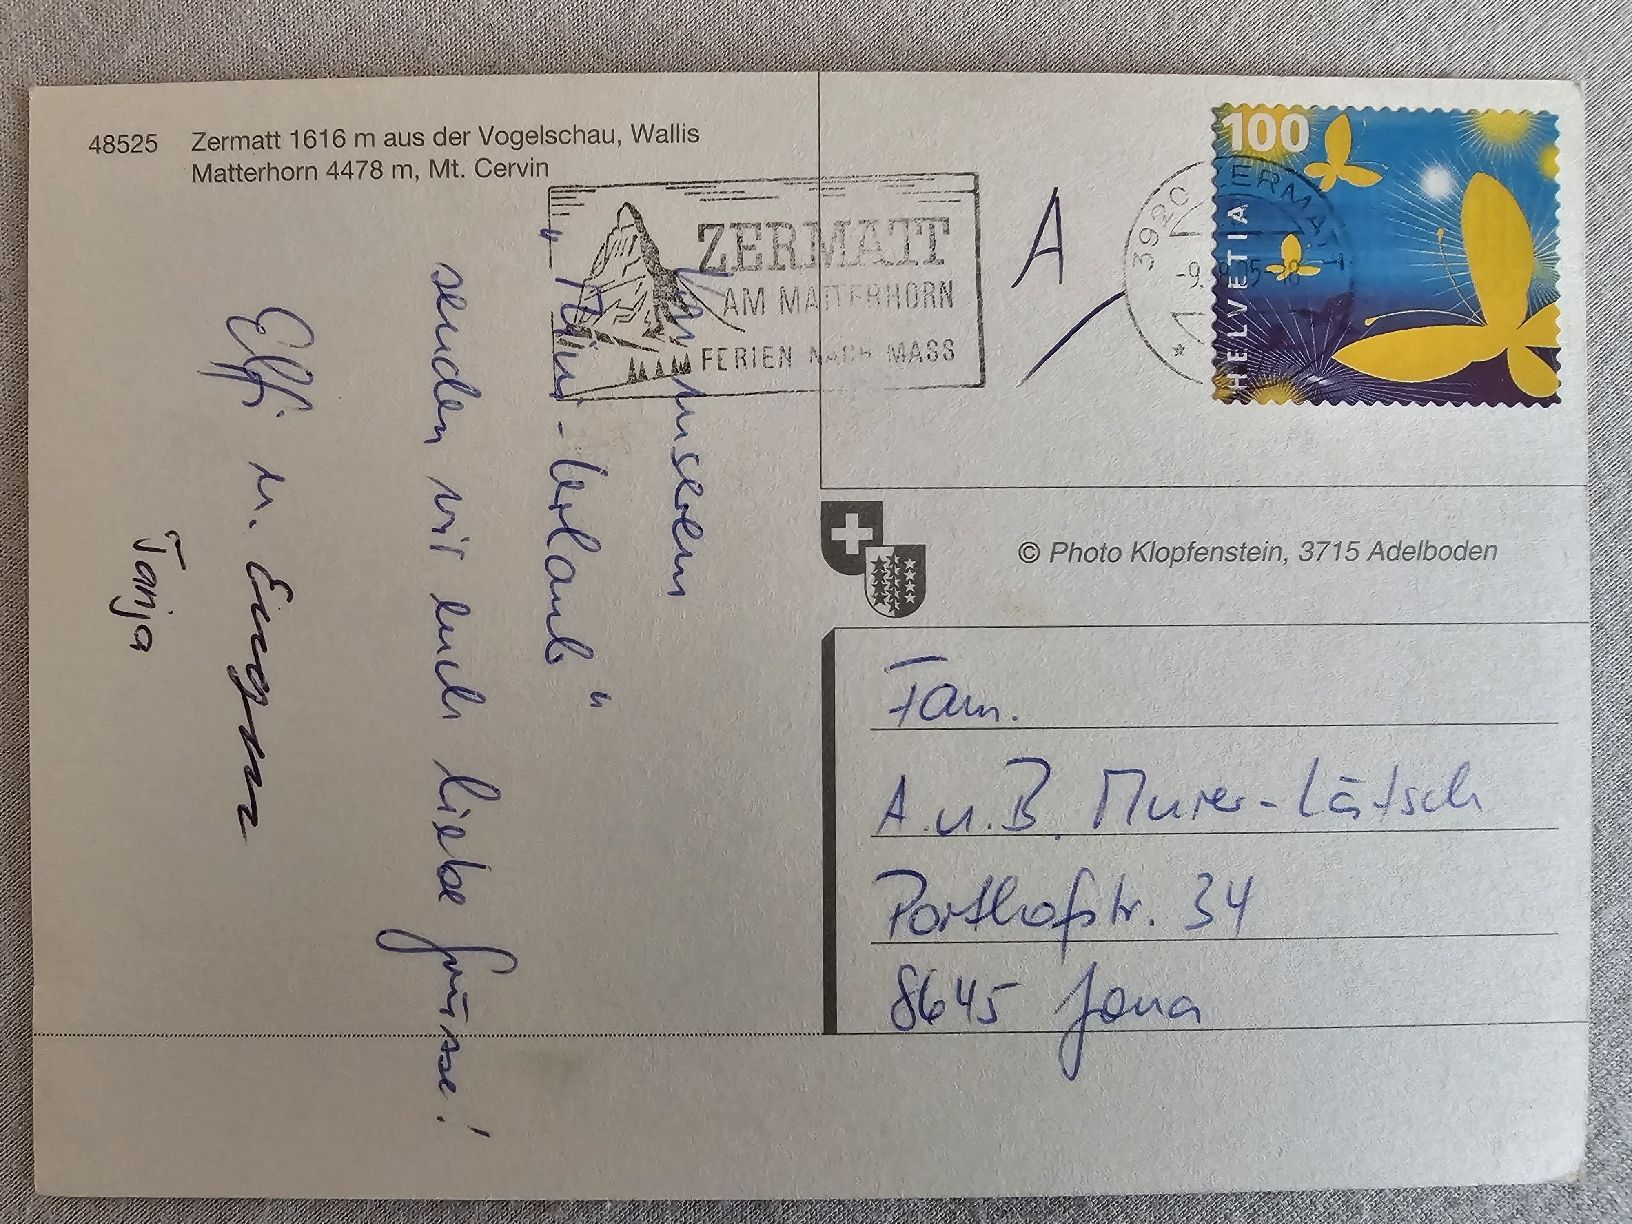 48525 Zermatt 1616 m aus der Vogelschau, Wallis
Matterhorn 4478 m, Mt. Cervin
ZERMATT
AM MATTERHORN
FERIEN NACH MASS
A
100
HELVETIA
3920 ZERMATT
© Photo Klopfenstein, 3715 Adelboden
Von unserem
"Mini-Urlaub"
senden wir euch liebe Grüsse!
Elfi u. Eugen
Tanja
Fam.
A. u. B. Murer-Lätsch
Porthofstr. 34
8645 Jona